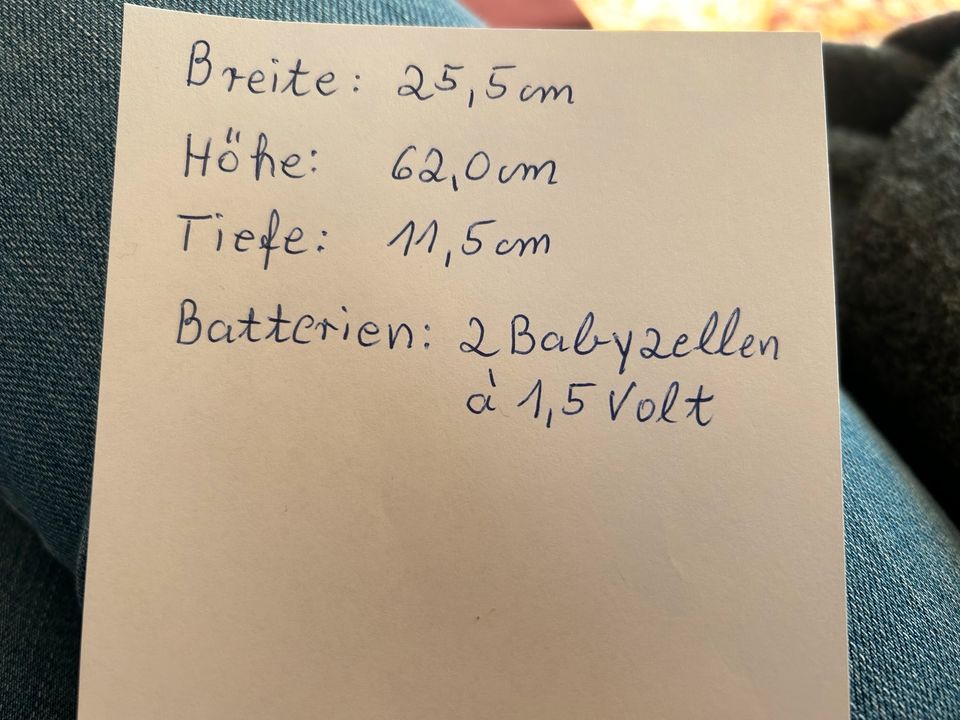 Breite: 25,5cm
Höhe: 62,0cm
Tiefe: 11,5cm
Batterien: 2 Babyzellen
à 1,5 Volt